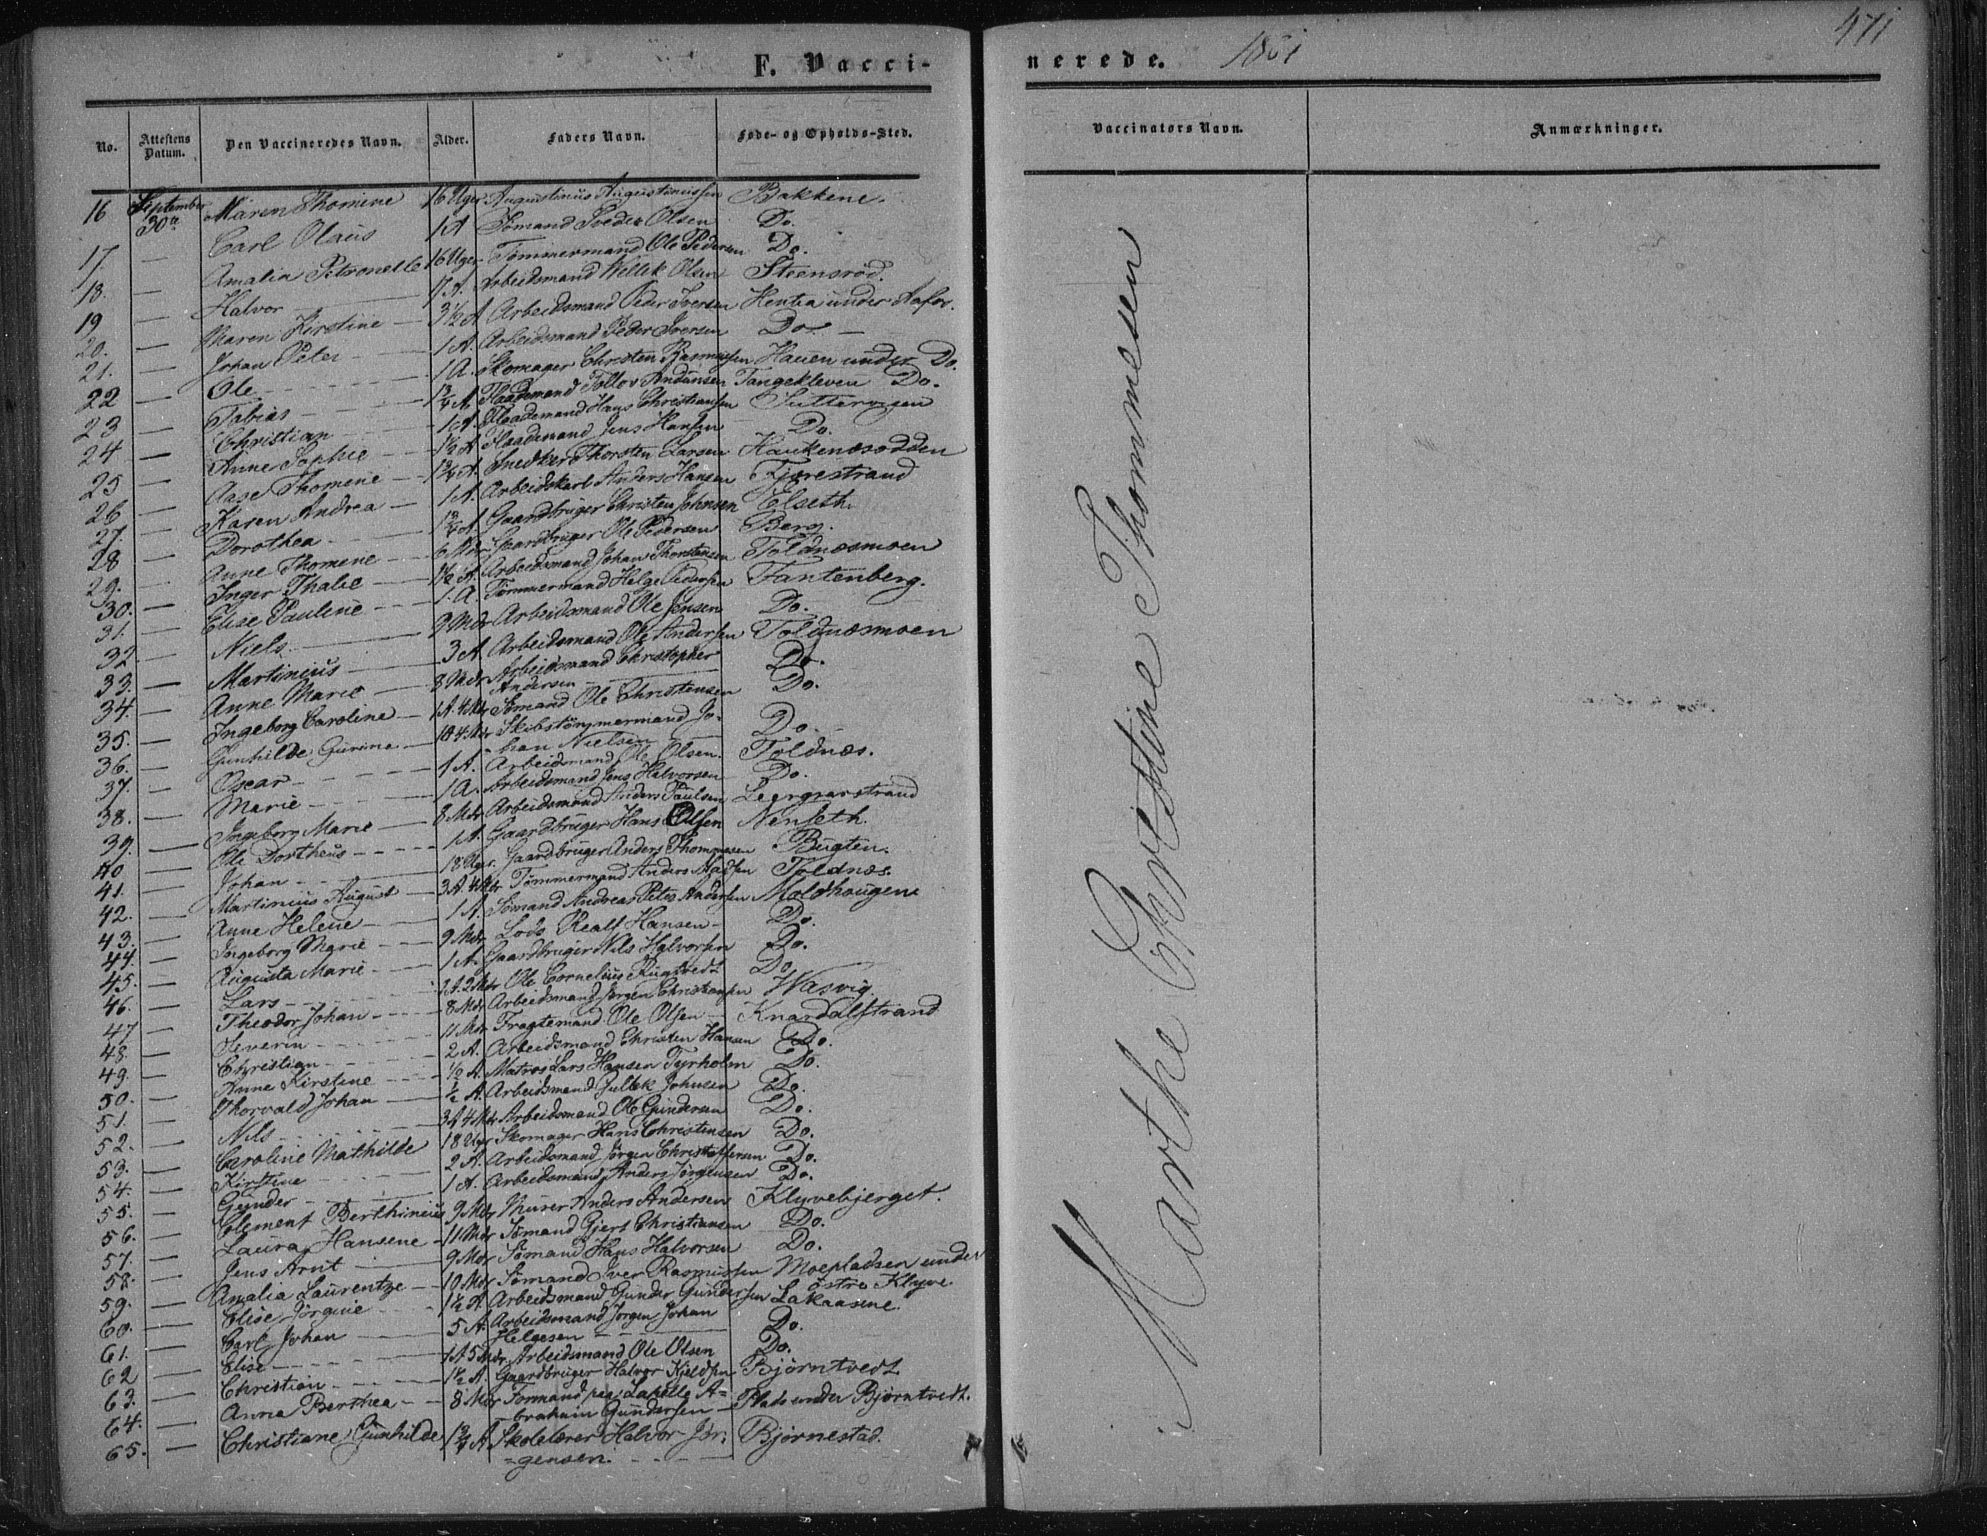 F. Vacci-
nerede. 1861
471
No. Attestens Datum. Den Vaccineredes Navn. Alder. Faders Navn. Føde- og Opholds-Sted.
Vaccinators Navn. Anmærkninger.
16 September 30te Maren Thomine 16 Uger Augustinius Augustinussen Bakkene.
17 — Carl Olaus 1 A Sømand Peder Olsen Do.
18. — Amalia Petronelle 16 Uger Tømmermand Ole Pedersen Do.
19 — Halvor Arbeidsmand Vetlek Olsen Steensrød.
20. — Maren Kirstine 3½ A Arbeidsmand Peder Iversen Hentea under
21. — Johan Peter 1 A. Arbeidsmand Peder Iversen Do. —
22 — Ole 1 A. Skomager Christen Rasmussen Hauen under Do.
23 — Tobias 1¾ A Flaademand Tollov Andunsen Tangekleven Do.
24 — Christian 1 A. Flaademand Hans Christiansen
25 — Anne Sophie 1½ A Flaademand Jens Hansen Do.
26 — Aase Thomine 1¾ A. Snedker Thorsten Larsen Haukenæsodden
27. — Karen Andrea 1 A. Arbeidskarl Anders Hansen Fjærestrand
28 — Dorothea 1¾ A. Gaardbruger Christen Johnsen Elseth.
29. — Anne Thomine 6 Mdr Gaardbruger Ole Pedersen Berg.
30. — Inger Thalie 1½ A. Arbeidsmand Johan Thorstensen Toldnæsmoen
31. — Elise Pauline 1. A. Tømmermand Helge Pedersen Fantenberg.
32 — Niels 9 Mdr Arbeidsmand Ole Jensen Do.
33. — Martinius 3 A Arbeidsmand Ole Andersen Toldnæsmoen
34. — Anne Marie 8 Mdr Arbeidsmand Christopher Andersen Do.
35. — Ingeborg Caroline 1 A. 4 Mdr Sømand Ole Christensen Do.
36. — Gunhilde Gurine 4 Mdr Skibstømmermand Johan Nielsen Do.
37. — Oscar 1 A. Arbeidsmand Ole Olsen. Toldnæs.
38. — Marie 1 A. Arbeidsmand Jens Halvorsen Do.
39. — Ingeborg Marie 8 Mdr Arbeidsmand Anders Paulsen
40 — Ole Dortheus 1 A. Gaardbruger Hans Olsen Nenseth.
41. — Johan 18 Uger. Gaardbruger Anders Thommesen Bugten.
42. — Martinius August 3 A 4 Mdr Tømmermand Anders Madsen Toldnæs.
43. — Anne Helene 1 A. Sømand Andreas Peter Andersen Moldhaugen
44. — Ingeborg Marie 9 Mdr Lods Realf Hansen Do.
45. — Augusta Marie 1 A. Gaardbruger Nils Halvorsen Do.
46. — Lars 1 A. 2 Mdr Ole Cornelius Rugtvedt Do.
47 — Theodor Johan 8 Mdr Arbeidsmand Jørgen Christensen Wasvig.
48. — Severin 11 Mdr Fragtemand Ole Olsen Knardalstrand
49. — Christian 2 A. Arbeidsmand Christen Hansen Do.
50. — Anne Kirstine ½ A. Matros Lars Hansen Tyrholm Do.
51. — Thorvald Johan ½ A. Arbeidsmand Gullek Johnsen Do.
52. — Nils 3 A 4 Mdr Arbeidsmand Ole Gundersen Do.
53. — Caroline Mathilde 18 Uger Skomager Hans Christensen Do.
54. — Kirstine 2 A. Arbeidsmand Jørgen Christoffersen Do.
55. — Gunder 1 A. Arbeidsmand Anders Jørgensen Do.
56. — Clement Berthinius 9 Mdr Murer Anders Andersen Klyvebjerget.
57. — Laura Hansene 11 Mdr Sømand Gjert Christiansen Do.
58. — Jens Arnt 9 Mdr Sømand Hans Halvorsen Do.
59. — Amalia Laurentze 10 Mdr Sømand Iver Rasmussen Moepladsen under østre Klyve
60. — Elise Jørgine 1½ A Arbeidsmand Gunder Gundersen Lakaasene.
61. — Carl Johan 5 A. Arbeidsmand Jørgen Johan Helgesen Do.
62 — Elise 1 A 5 Mdr Arbeidsmand Ole Olsen Do.
63. — Christian 1½ A. Gaardbruger Halvor Kjeldsen Bjørntvedt
64. — Anna Berthea 8 Mdr Formand paa Abraham Gundersen Plads under Bjørntvedt.
65. — Christiane Gunhilde 1¾ A. Skolelærer Halvor Jørgensen Bjørnestad.
Marthe Christine Thommesen